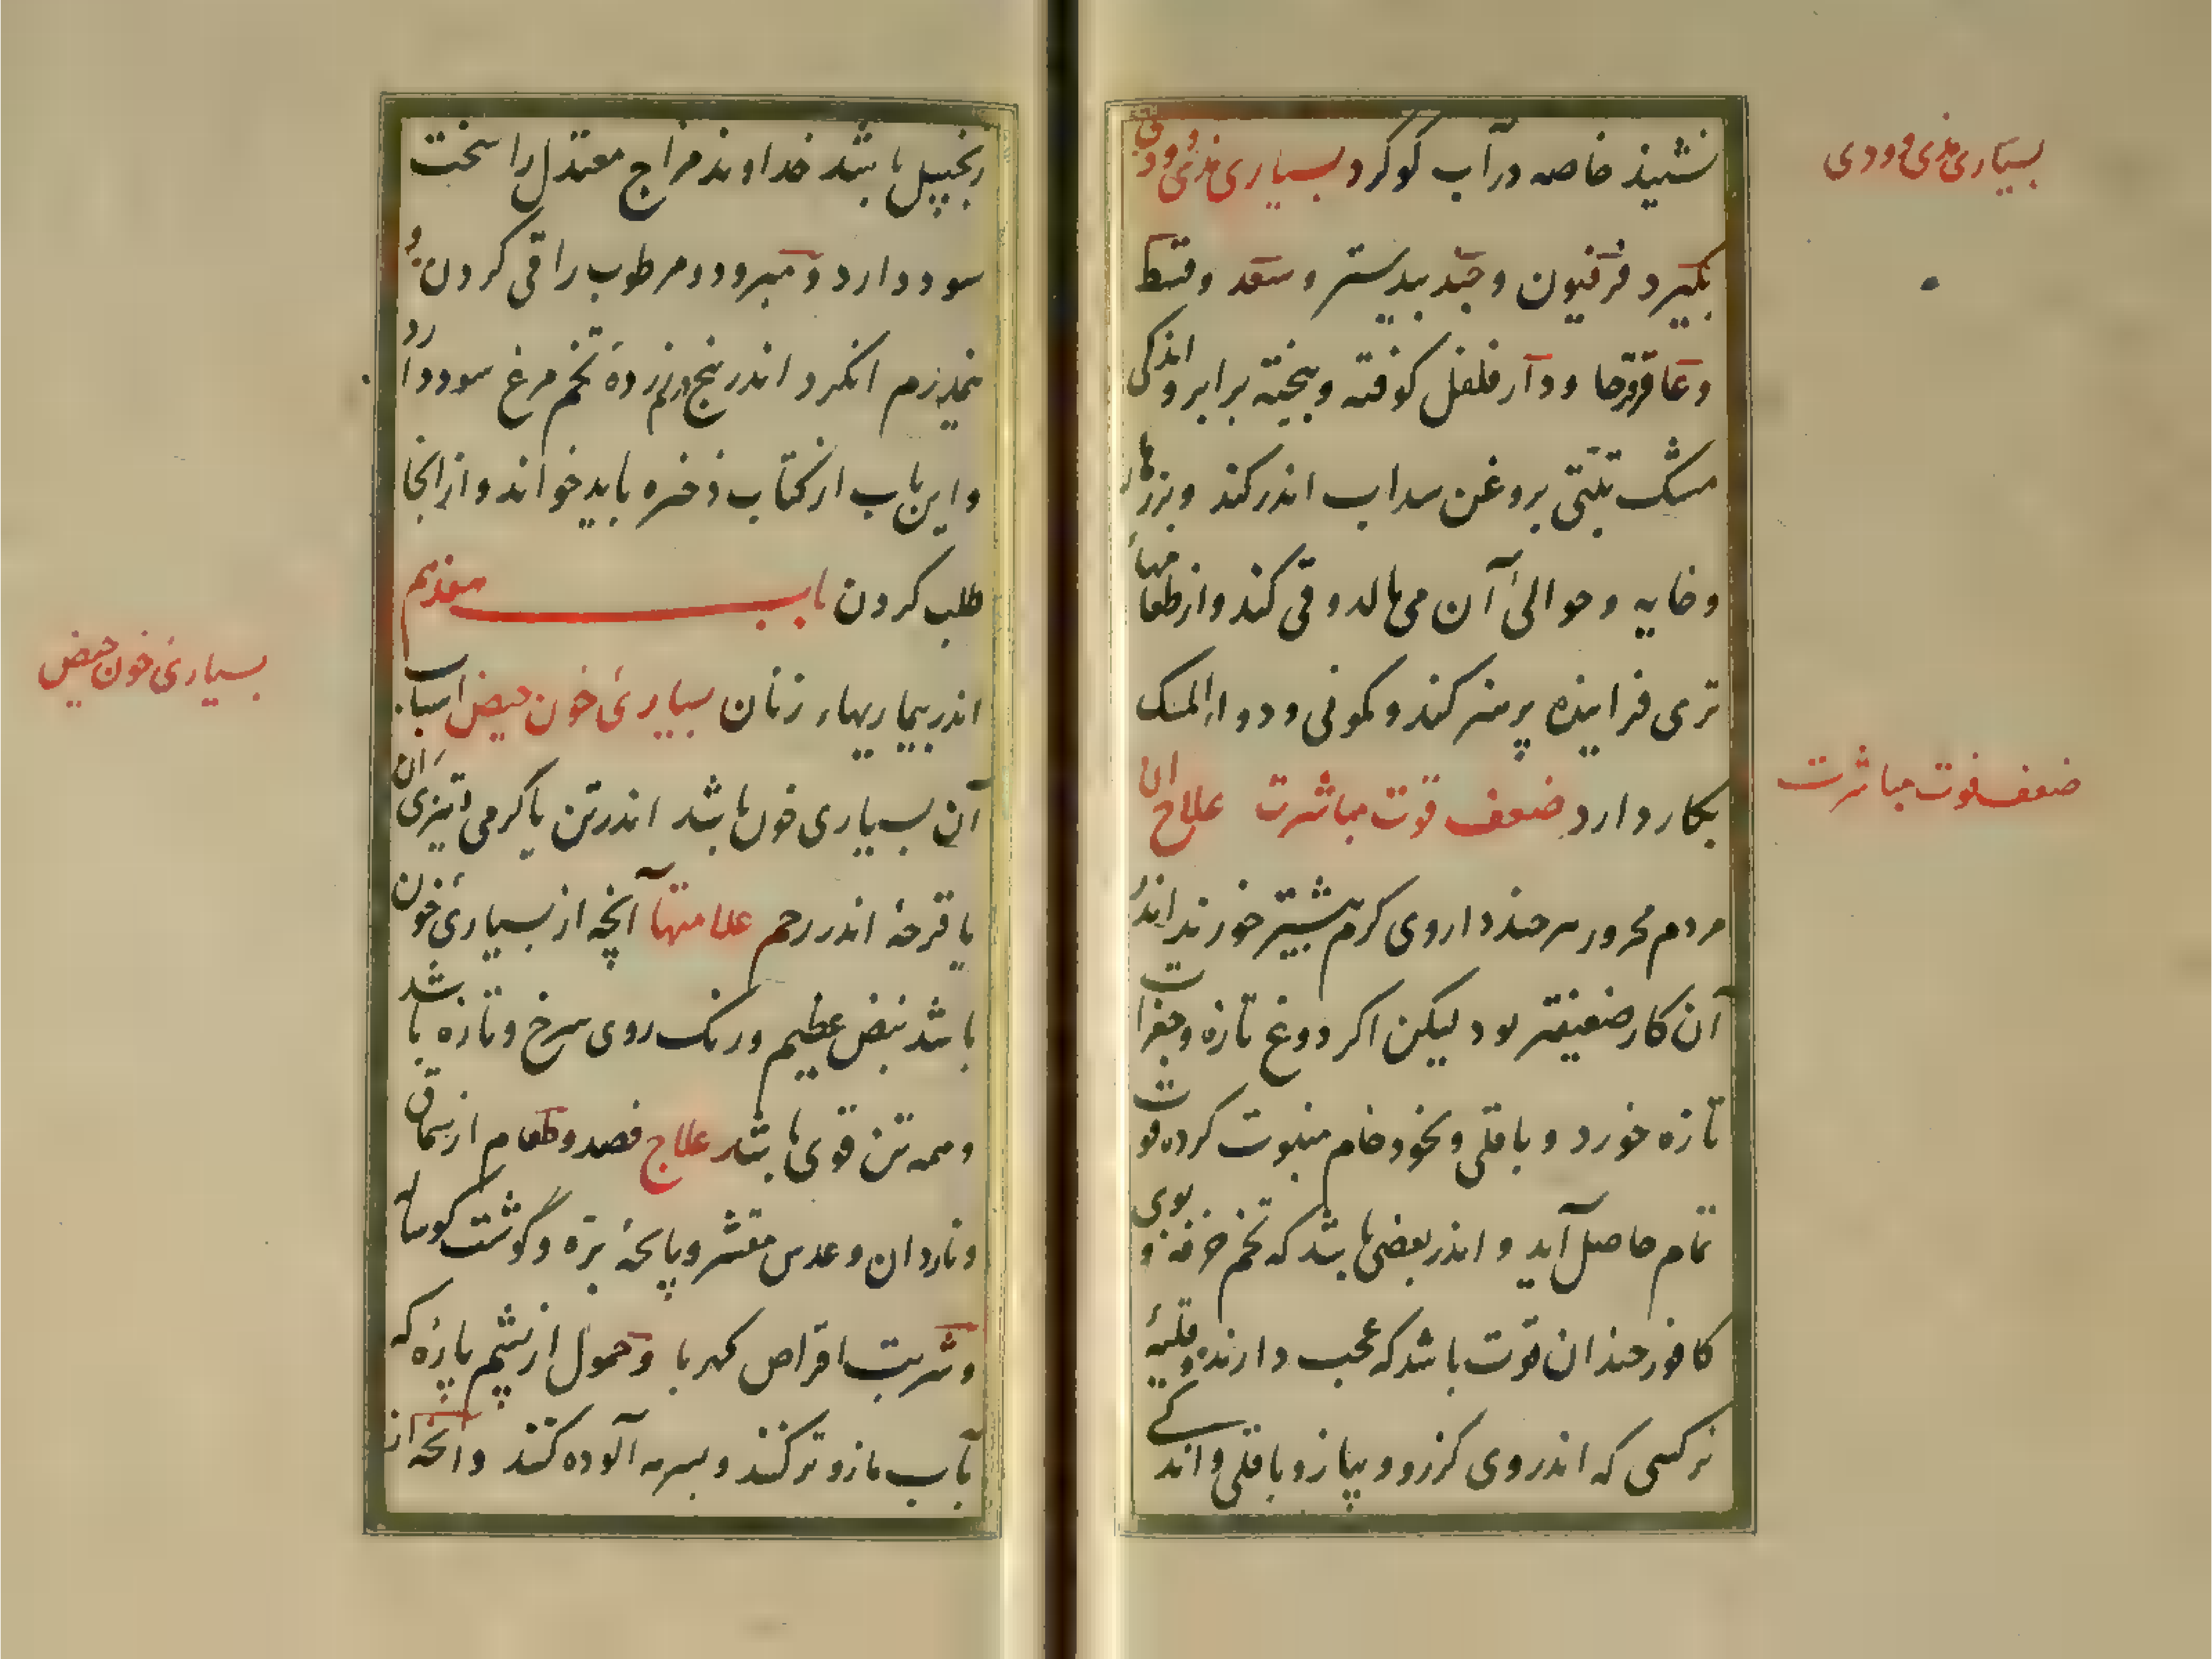 نشیند خاصه در آب کوکرد بسیاری مذی و ودی
بسیاری مذی و ودی
بکیرد فرفیون و جند بیدستر و سعد و قسط
و عاقرقرحا و دار فلفل کوفته و بیخته برابر و اندکی
مشک تبتی بروغن سداب اندر کند و بزرهار
و خایه و حوالیٔ آن می مالد و قی کند و از طعامهاء
تری فزاینده پرهیز کند و کمونی و دواء المسک
بکار دارد ضعف قوت مباشرت علاج ان
ضعف قوت مباشرت
مردم محرور هر چند داروی کرم بیشتر خورند اندر
آن کار ضعیفتر بود لیکن اکر دوغ تازه و جغرات
تازه خورد و باقلی و نخود خام منبوت کرده قوت
تمام حاصل آید و اندر بعضی باشد که تخم خرفه و بوی
کافور چندان قوت باشد که عجب دارند و قلیهٔ
نرکسی که اندر وی کزر و پیاز و باقلی و اندکی
زنجبیل باشد خداوند مزاج معتدل را سخت
سود دارد و مبرود و مرطوب را قی کردن و
اندر پنج درم زردهٔ تخم مرغ سود دارد
و این باب از کتاب ذخیره باید خواند و از انجا
طلب کردن باب هفدهم
اندر بیماریهاء زنان بسیاریٔ خون حیض اسباب
بسیاریٔ خون حیض
آن بسیاری خون باشد اندر تن یا کرمی و تیزی ان
یا قرحهٔ اندر رحم علامتها آنچه از بسیاریٔ خون
باشد نبض عظیم و رنک روی سرخ و تازه باشد
و همه تن قوی باشد علاج فصد و طعام از سماق
و ناردان و عدس مقشر و پاچهٔ بره و کوشت کوساله
و شربت اقراص کهربا و حمول از پشم پاره که
بآب مازو تر کنند و بسرمه آلوده کنند و انچه از